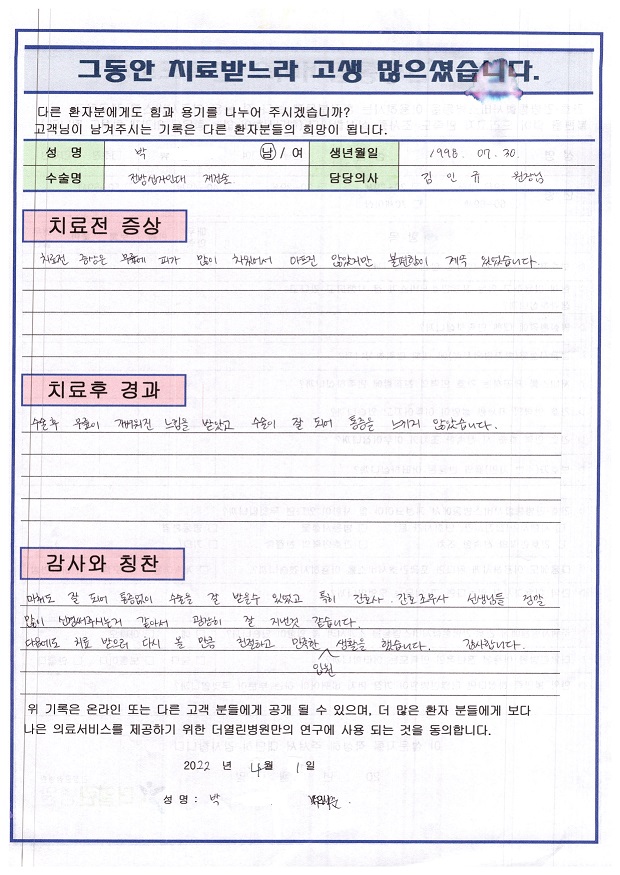 그동안 치료받느라 고생 많으셨습니다.
다른 환자분에게도 힘과 용기를 나누어 주시겠습니까?
고객님이 남겨주시는 기록은 다른 환자분들의 희망이 됩니다.
성 명 박 남 / 여 생년월일 1998. 07. 30.
수술명 전방십자인대 재건술 담당의사 김인규 원장님
치료전 증상
치료전 증상은 무릎에 피가 많이 차있어서 아프진 않았지만 불편함이 계속 있었습니다.
치료후 경과
수술후 무릎이 가벼워진 느낌을 받았고 수술이 잘 되어 통증을 느끼지 않았습니다.
감사와 칭찬
마취도 잘 되어 통증없이 수술을 잘 받을수 있었고 특히 간호사·간호조무사 선생님들 정말
많이 신경써주시는거 같아서 굉장히 잘 지낸것 같습니다.
다음에도 치료 받으러 다시 올 만큼 친절하고 만족한 생활을 했습니다. 감사합니다.
입원
위 기록은 온라인 또는 다른 고객 분들에게 공개 될 수 있으며, 더 많은 환자 분들에게 보다
나은 의료서비스를 제공하기 위한 더열린병원만의 연구에 사용 되는 것을 동의합니다.
2022 년 4월 1일
성 명 : 박